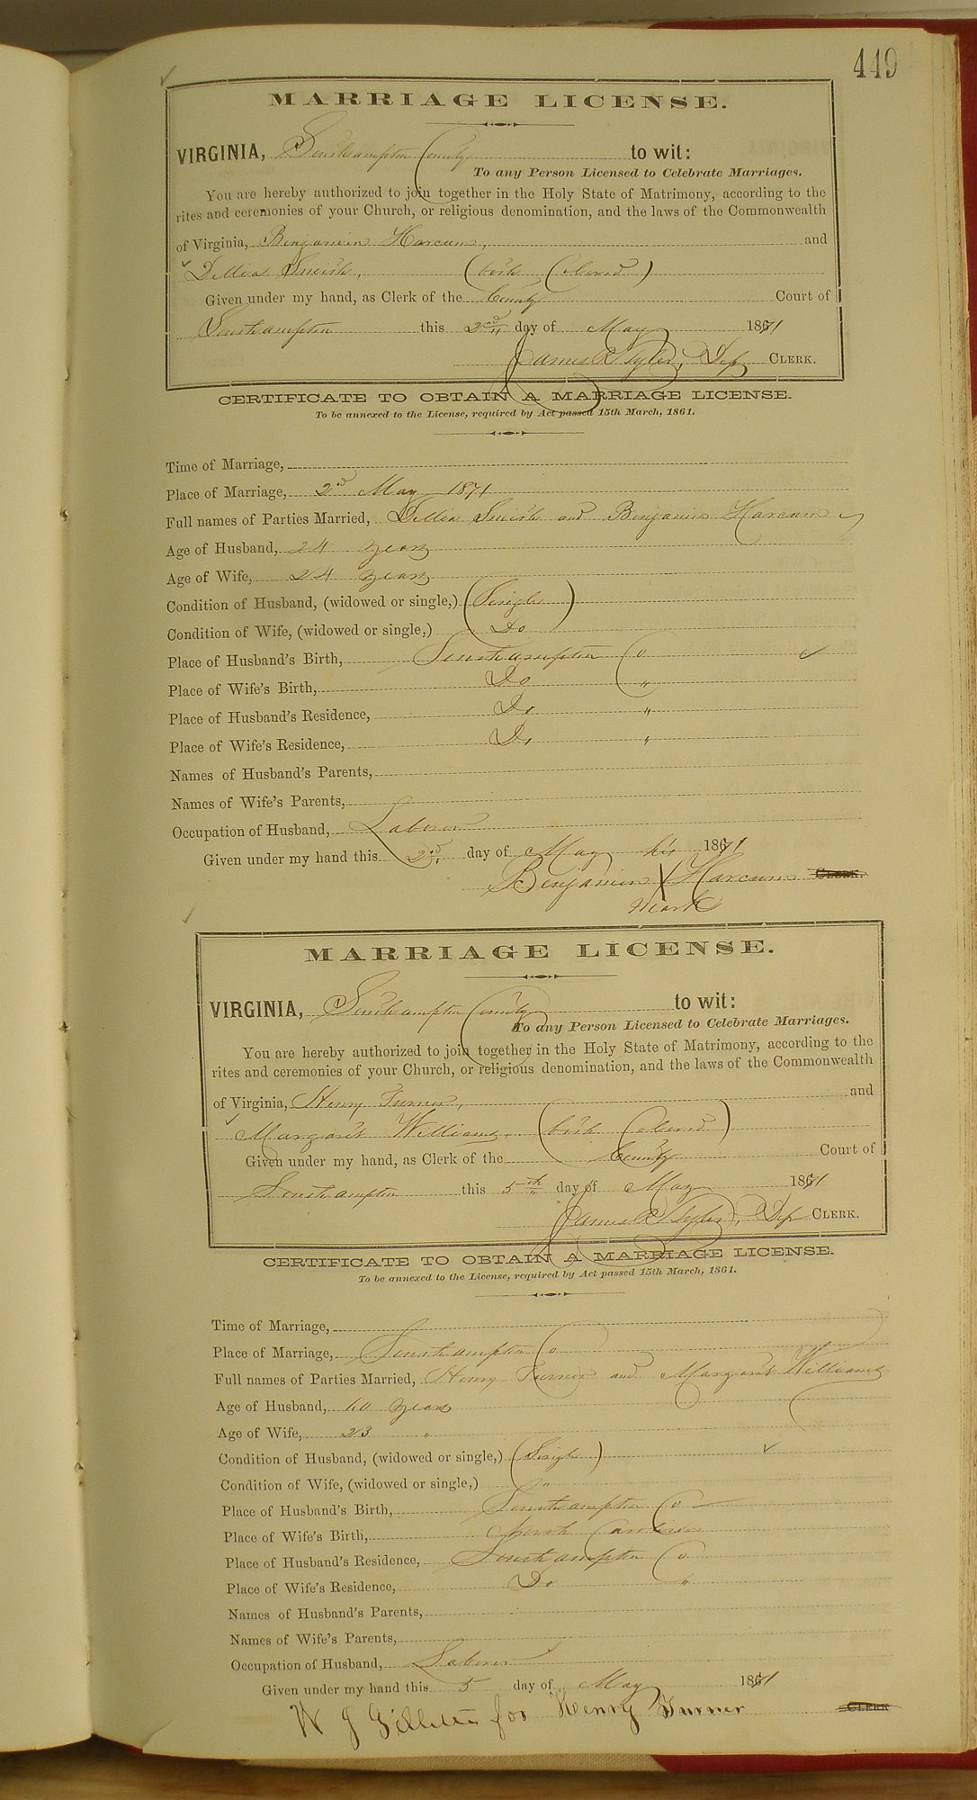 449
MARRIAGE LICENSE.
VIRGINIA, Southampton County to wit:
To any Person Licensed to Celebrate Marriages.
You are hereby authorized to join together in the Holy State of Matrimony, according to the
rites and ceremonies of your Church, or religious denomination, and the laws of the Commonwealth
of Virginia, Benjamin Harcum, and
Smith, (both Colored)
Given under my hand, as Clerk of the County Court of
Southampton this 2nd day of May 1871
James R Tyler, Dep CLERK.
CERTIFICATE TO OBTAIN A MARRIAGE LICENSE.
To be annexed to the License, required by Act passed 15th March, 1861.
Time of Marriage,
Place of Marriage, 2nd May 1871
Full names of Parties Married, Smith and Benjamin Harcum
Age of Husband, 24 years
Age of Wife, 24 years
Condition of Husband, (widowed or single,) (Single)
Condition of Wife, (widowed or single,) Do
Place of Husband's Birth, Southampton Co
Place of Wife's Birth, Do "
Place of Husband's Residence, Do "
Place of Wife's Residence, Do "
Names of Husband's Parents,
Names of Wife's Parents,
Occupation of Husband, Laborer
Given under my hand this 2nd day of May 1871
his
Benjamin X Harcum CLERK.
mark
MARRIAGE LICENSE.
VIRGINIA, Southampton County to wit:
To any Person Licensed to Celebrate Marriages.
You are hereby authorized to join together in the Holy State of Matrimony, according to the
rites and ceremonies of your Church, or religious denomination, and the laws of the Commonwealth
of Virginia, Henry Turner, and
Margaret Williams, (both Colored)
Given under my hand, as Clerk of the County Court of
Southampton this 5th day of May 1871
James R Tyler, Dep CLERK.
CERTIFICATE TO OBTAIN A MARRIAGE LICENSE.
To be annexed to the License, required by Act passed 15th March, 1861.
Time of Marriage,
Place of Marriage, Southampton Co
Full names of Parties Married, Henry Turner and Margaret Williams
Age of Husband, 60 years
Age of Wife, 23 "
Condition of Husband, (widowed or single,) (Single)
Condition of Wife, (widowed or single,) "
Place of Husband's Birth, Southampton Co
Place of Wife's Birth, North Carolina
Place of Husband's Residence, Southampton Co
Place of Wife's Residence, Do "
Names of Husband's Parents,
Names of Wife's Parents,
Occupation of Husband, Laborer
Given under my hand this 5 day of May 1871
W J for Henry Turner CLERK